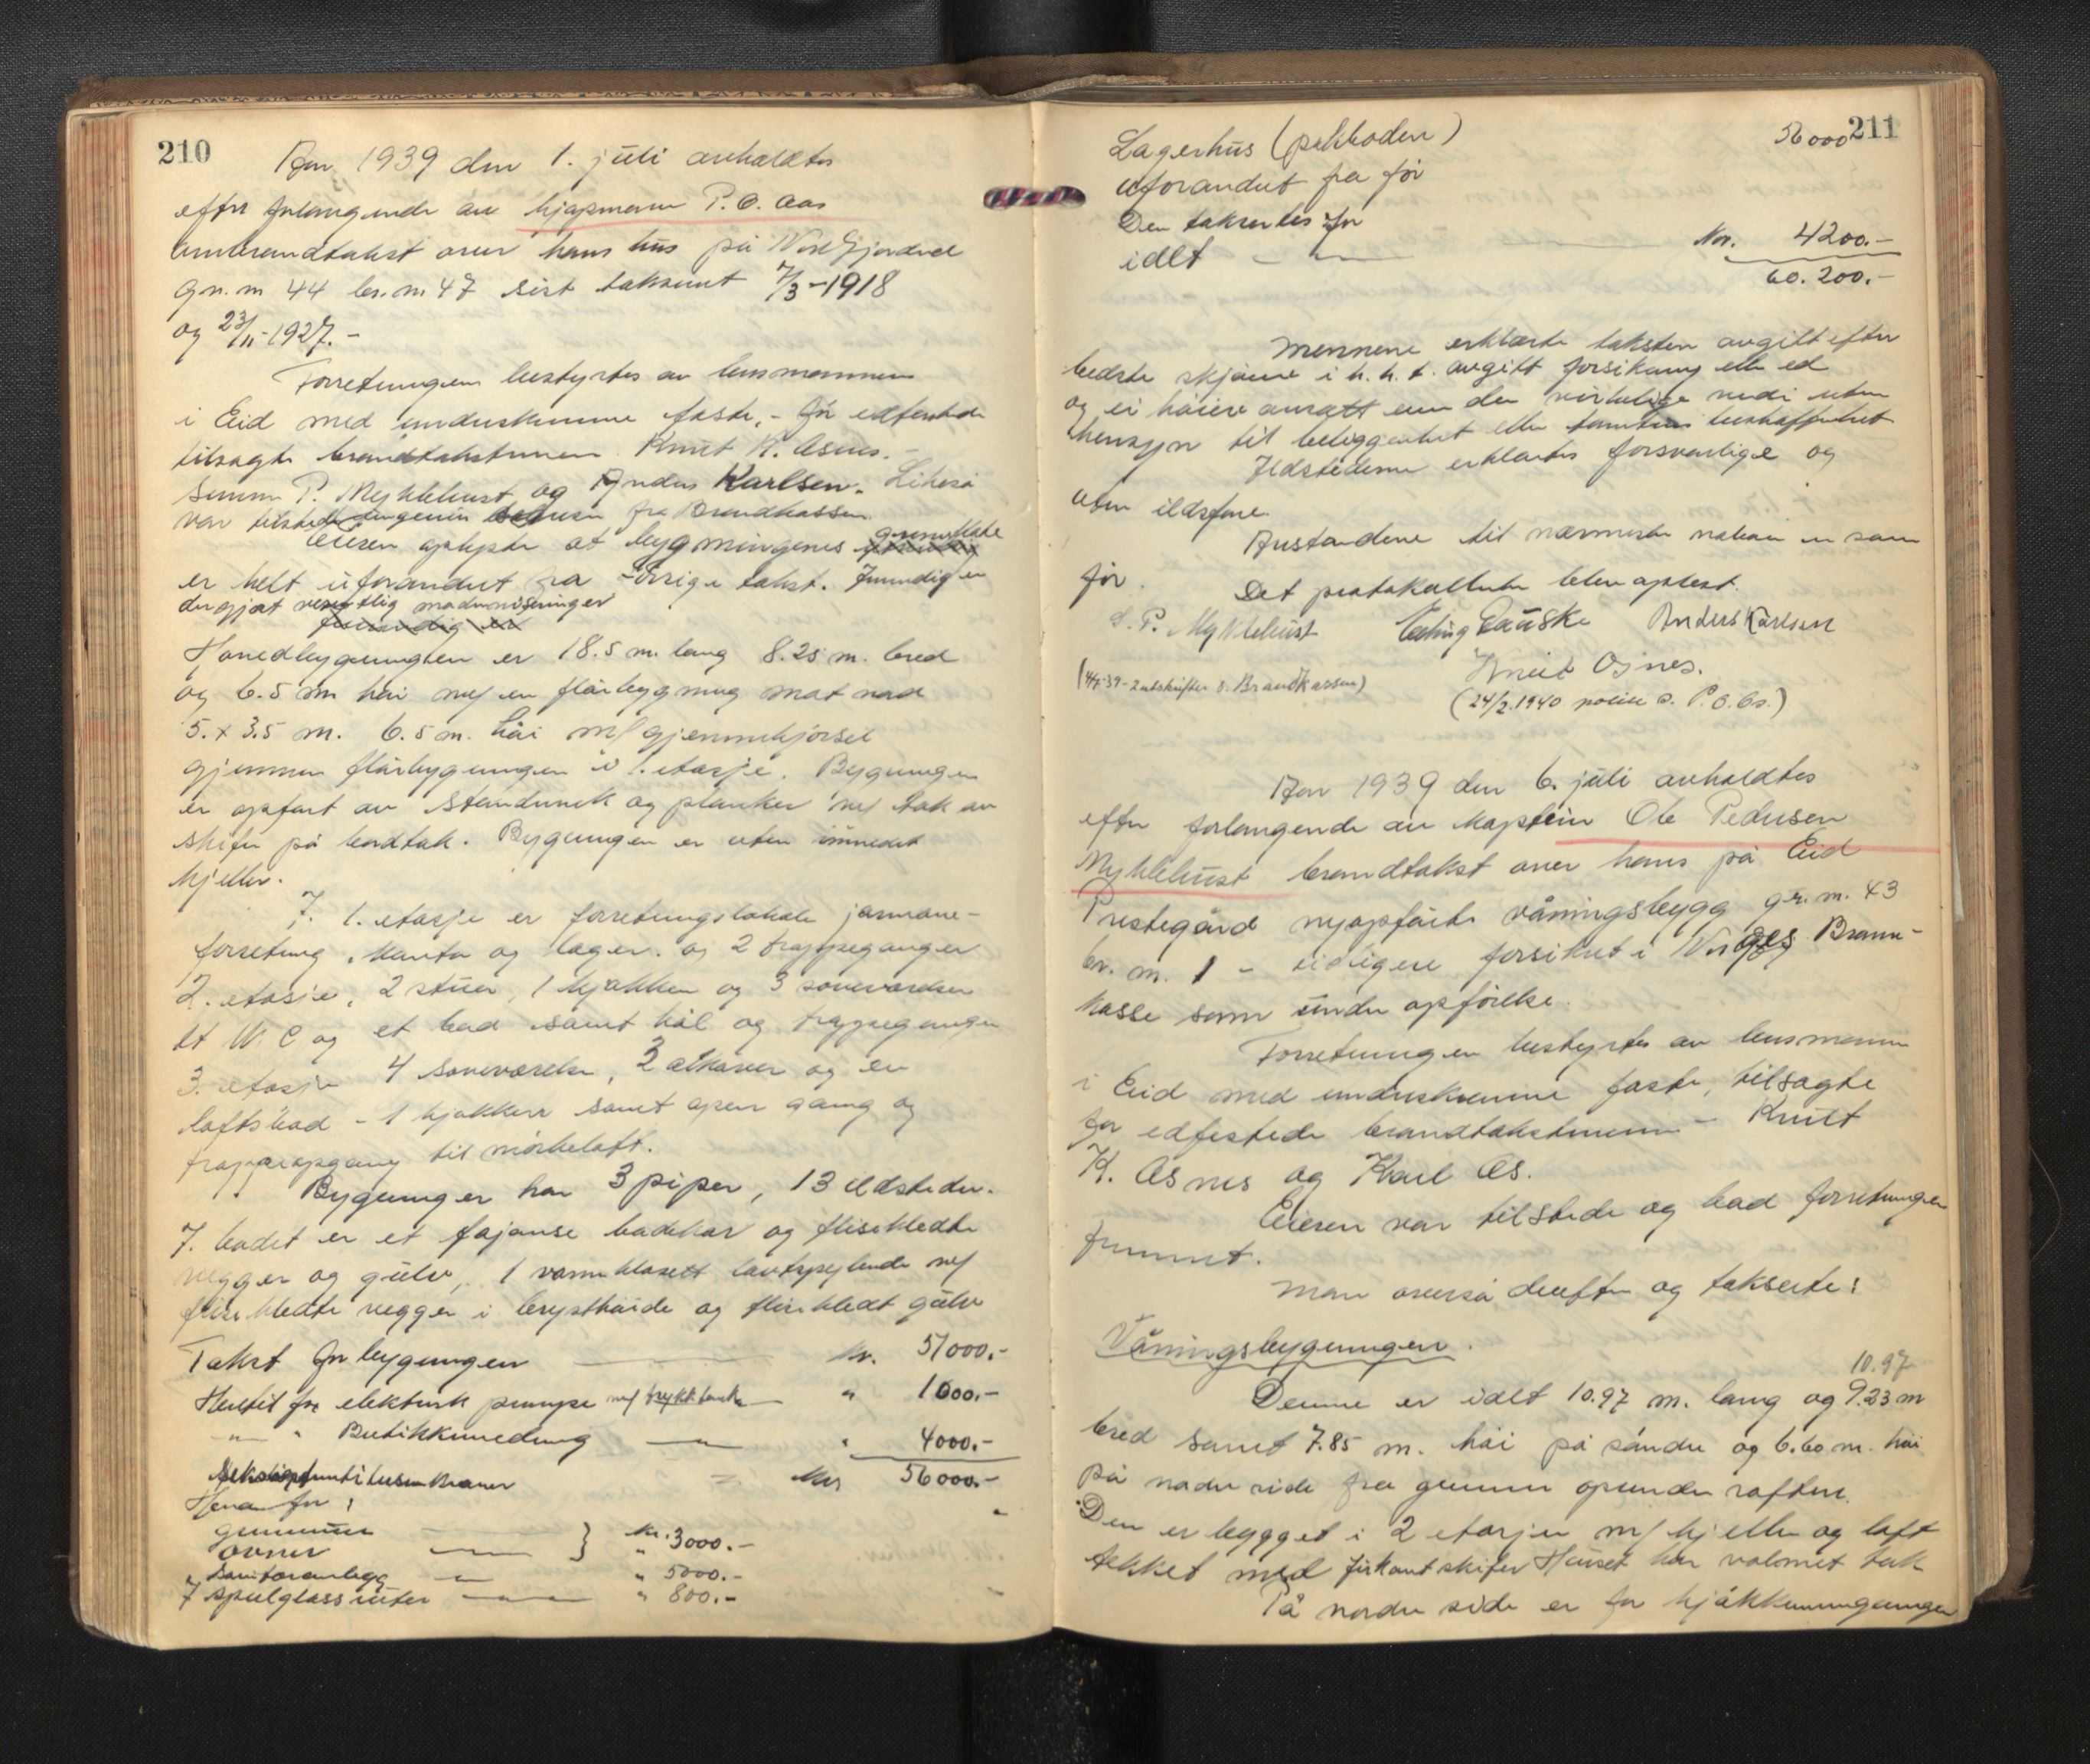 210
Aar 1939 den 1. juli avholdtes
efter forlangende av kjøpmann P. O. Aas
ombrandtakst over hans hus på Nordfjordeid
gn. nr 44 br. nr 47 sist taksert 7/3-1918
og 23/11-1927. -
Forretningen bestyrtes av lensmannen
i Eid med underskrevne faste, - før edfestede
tilsagte brandtakstmenn Knut K. Osnes. -
Simon P. Myklebust og Anders Karlsen. Likeså
var tilstede fra Brandkassen
Eieren oplyste at bygningenes grunnflate
er helt uforandret fra forrige takst. Innvendig er
der gjort vesentlig moderniseringer
Hovedbygningen er 18.5 m. lang 8.25 m. bred
og 6.5 m høi m/ en fløibygning mot nord
5. x 3.5 m. 6.5 m. høi m/ gjennemkjørsel
gjennem fløibygningen i 1. etasje. Bygningen
er opført av stenderverk og planker m/ tak av
skifer på bordtak. Bygningen er uten innredet
kjeller.
I. 1. etasje er forretningslokale jernvare-
forretning, kontor og lager. og 2 trappeganger
2. etasje, 2 stuer, 1 kjøkken og 3 soveværelser
et W. C og et bad samt hal og trappeganger
3. etasje 4 soveværelser, 2 alkover og en
loftsbod - 1 kjøkken samt open gang og
trappeopgang til mørkeloft.
Bygningen har 3 piper, 13 ildsteder.
I. badet er et fajanse badekar og flisekledte
vegger og gulv, 1 vannklosett lavtspylende m/
flisekledte vegger i brysthøide og flisekledt gulv
Takst for bygningen kr. 51000.-
Hertil for elektrisk pumpe m/ trykktank " 1000.-
" " Butikkinnredning " 4000.-
Seksogfemtitusen kroner kr 56000.-
Herav for:
grunnmur
ovner } kr. 3000.-
" Sanitæranlegg " 5000.-
7 speilglassruter " 800.-
56000 211
Lagerhus (pakkboden)
uforandret fra før
Den takseres for
idlt Kr. 4200.-
60.200.-
Mennene erklærte taksten avgitt efter
bedste skjønn i h. h. t. avgitt forsikring eller ed
og ei høiere ansatt enn den virkelige verdi uten
hensyn til beliggenhet eller tomtens beskaffenhet
Ildstederne erklærtes forsvarlige og
uten ildsfare.
Avstandene til nærmeste naboer er som
før.
Det protokollerte blev oplest.
S. P. Myklebust Erling Gauske Anders Karlsen
Knut Osnes.
(4/7-39 - 2 utskrifter s. Brandkassen)
(24/2. 1940 polise s. P. O. Os.)
Aar 1939 den 6. juli avholdtes
efter forlangende av kaptein Ole Pedersen
Myklebust brandtakst over hans på Eid
Prestegård nyopførte våningsbygg gr. nr. 43
br. nr. 1 - tidligere forsikret i Norges Brann-
kasse som under opførelse.
Forretningen bestyrtes av lensmannen
i Eid med underskrevne faste, tilsagte
før edfestede brandtakstmenn - Knut
K. Osnes og Karl Os.
Eieren var tilstede og bad forretningen
fremmet.
Man overså derefter og takserte:
Våningsbygningen.
10.97
Denne er idelt 10.97 m. lang og 9.23 m
bred samt 7.85 m. høi på søndre og 6.60 m. høi
på nordre side fra grunnen opunder raftene.
Den er bygget i 2 etasjer m/ kjeller og loft
tekket med firkantskifer Huset har valmet tak
På nordre side er for kjøkkeninngangen